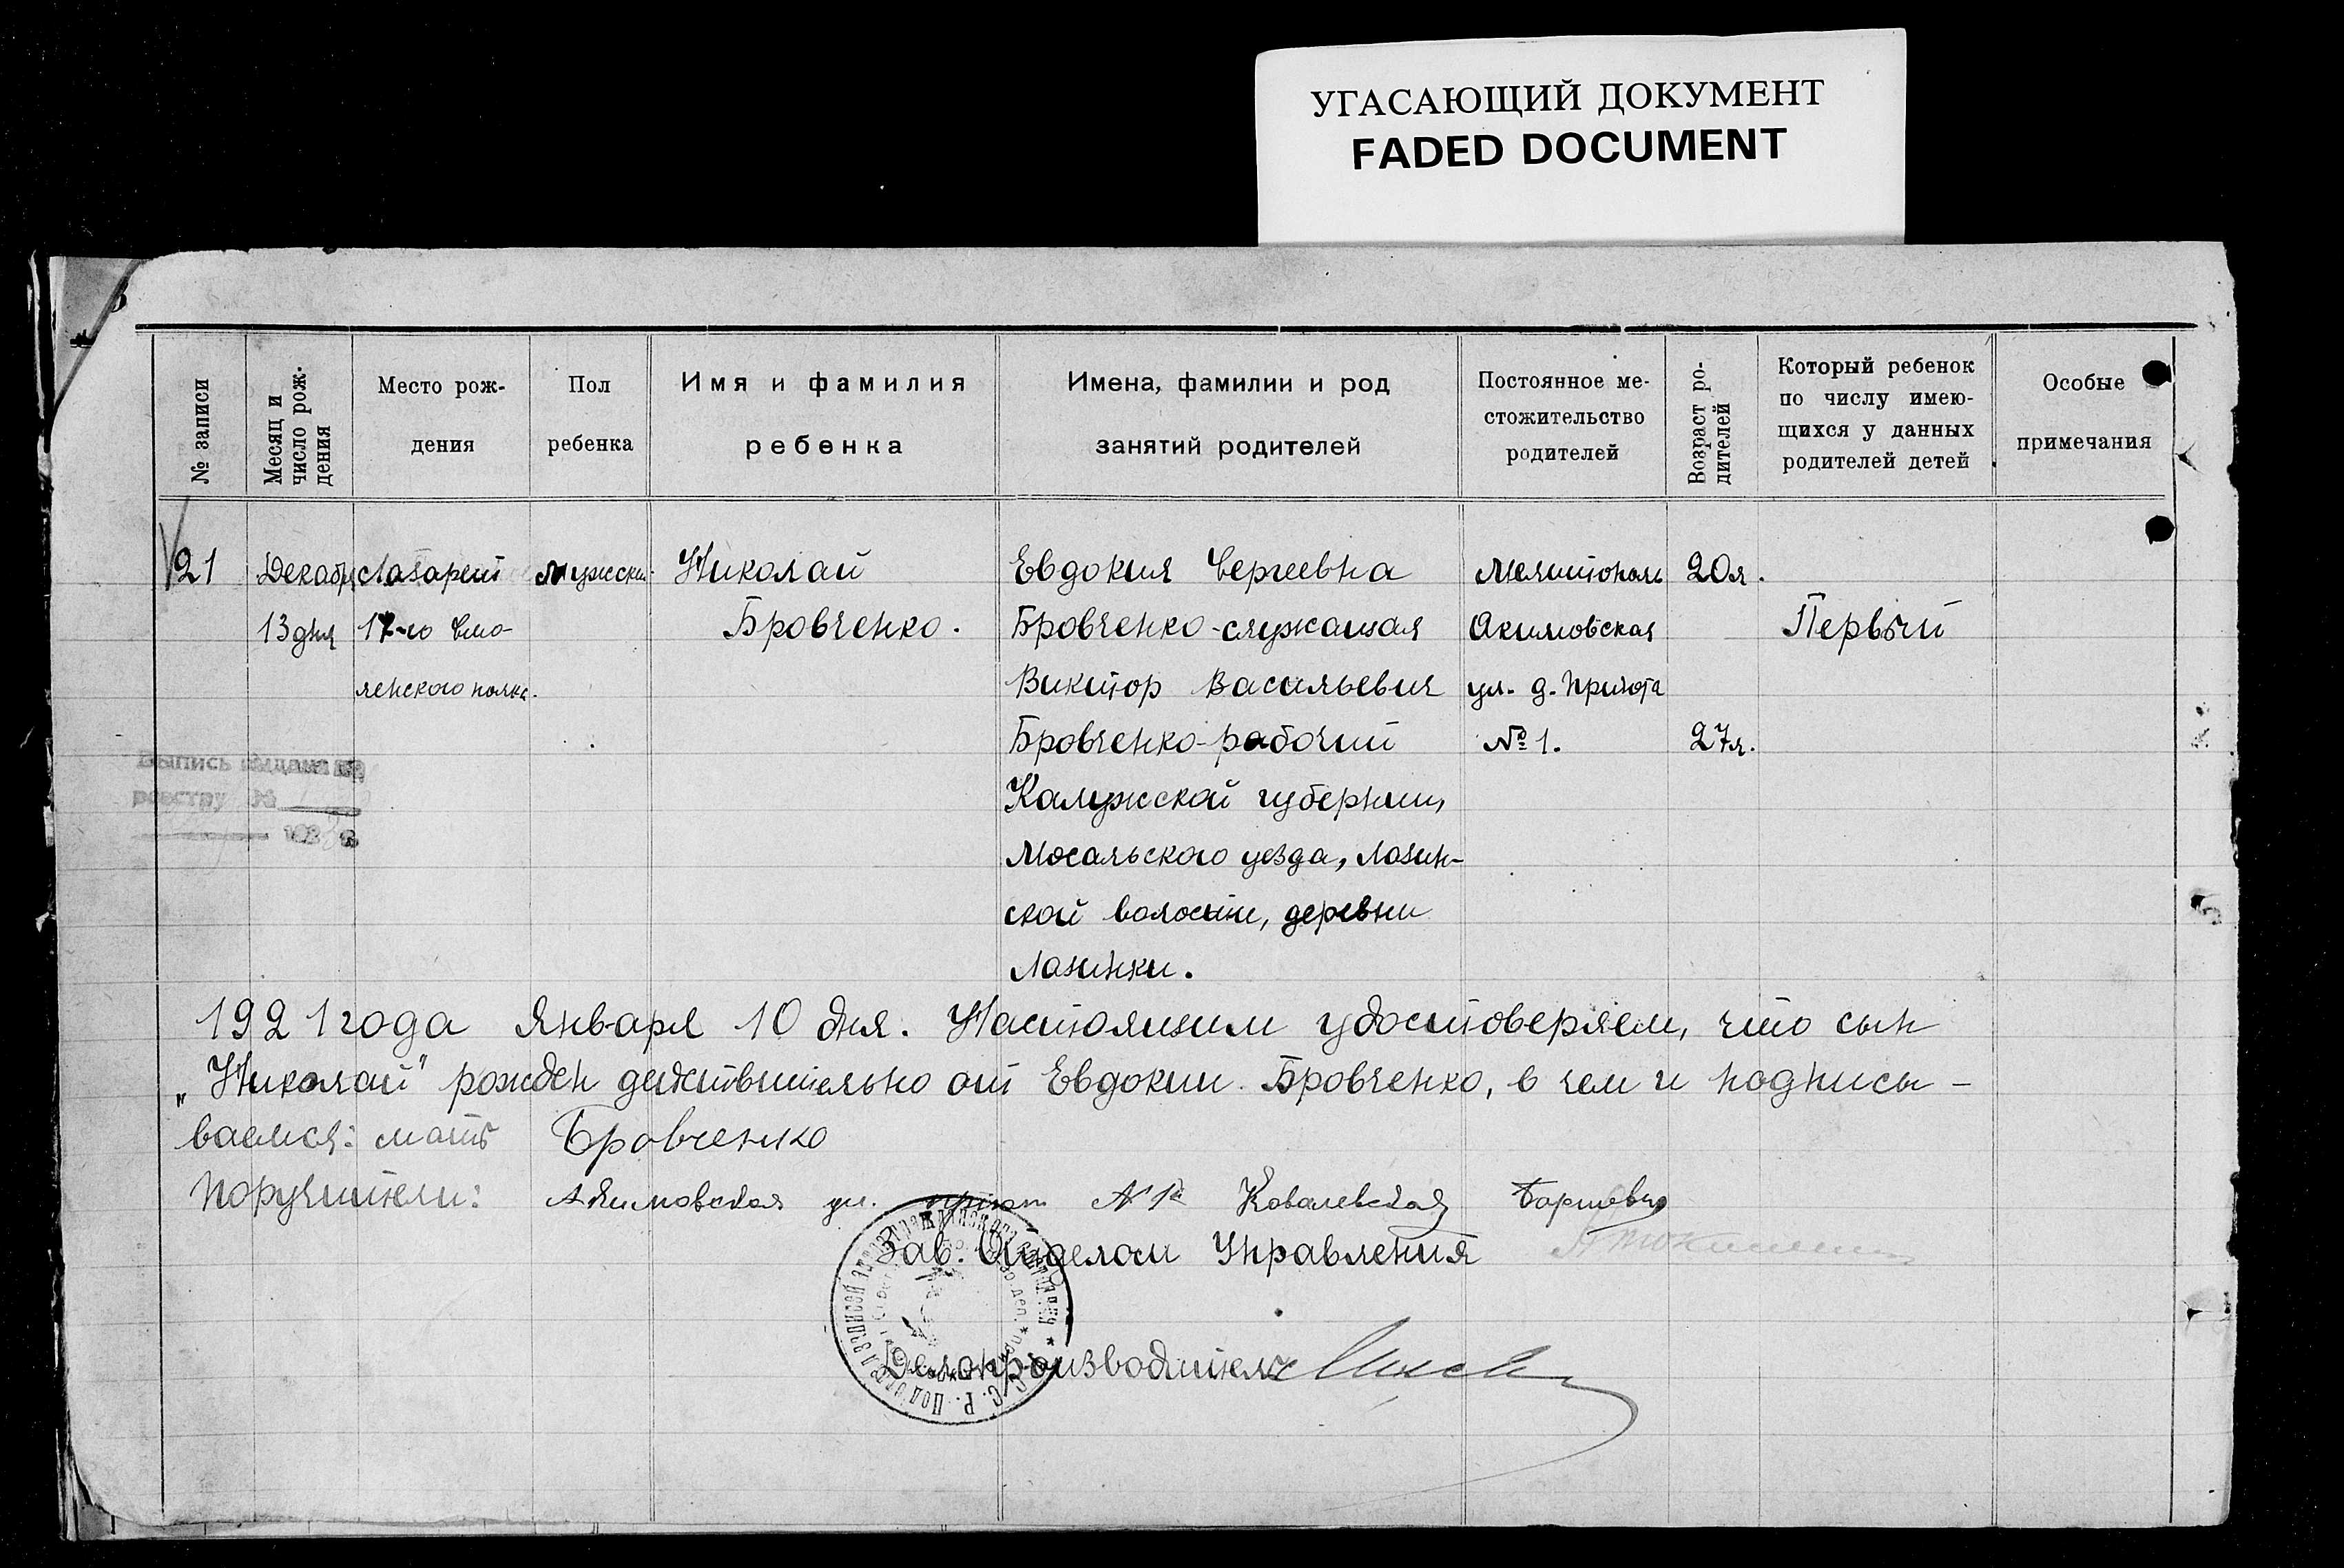 УГАСАЮЩИЙ ДОКУМЕНТ
FADED DOCUMENT
№ записи
Месяц и
число рож-
дения
Место рож-
дения
Пол
ребенка
Имя и фамилия
ребенка
Имена, фамилии и род
занятий родителей
Постоянное ме-
стожительство
родителей
Возраст ро-
дителей
Который ребенок
по числу имею-
щихся у данных
родителей детей
Особые
примечания
21
Декабря
13 дня
Лазарет
17-го Смо-
ленского полка.
мужской
Николай
Бровченко.
Евдокия Сергеевна
Бровченко-служащая
Виктор Васильевич
Бровченко-рабочий
Калужской губернии,
Мосальского уезда, Лазин-
ской волости, деревни
Лазинки.
Мелитополь
Акимовская
ул. д. Приюта
№ 1.
20л.
27л.
Первый
Выпись выдана по
реестру №
1921 года Января 10 дня. Настоящим удостоверяем, что сын
„Николай" рожден действительно от Евдокии Бровченко, в чем и подписы-
ваемся: мать Бровченко
Поручители: Акимовская ул. приют № 1й Ковалевская
Зав. Отделом Управления
Делопроизводитель